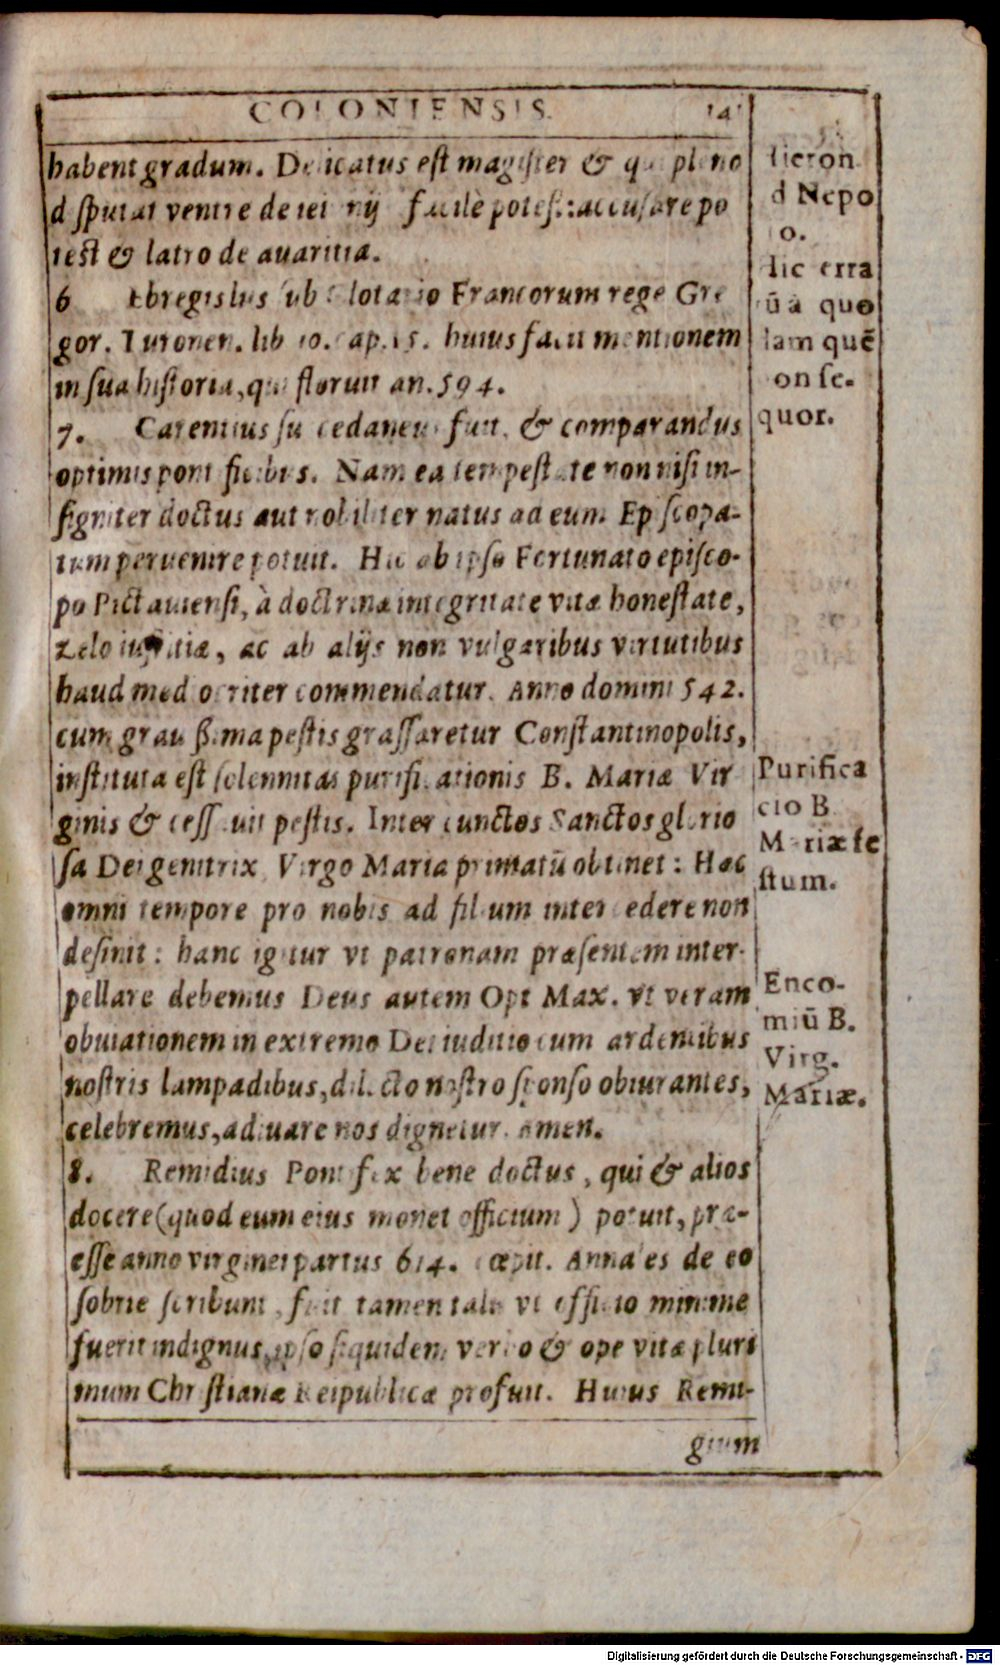 COLONIENSIS. 141
habent gradum. Delicatus est magister & qui pleno
disputat ventre de ieiunij facilè potest: accusare po
test & latro de avaritia.
6 Ebregislus sub Clotario Francorum rege Gre
gor. Turonen. lib 10. cap. 15. huius facit mentionem
in sua historia, qui floruit an. 594.
7. Carentius succedaneus fuit, & comparandus
optimis pontificibus. Nam ea tempestate non nisi in-
signiter doctus aut nobiliter natus ad eum Episcopa-
tum pervenire potuit. Hic ab ipso Fortunato episco-
po Pictauiensi, à doctrina integritate vitæ honestate,
zelo iustitiæ, ac ab alijs non vulgaribus virtutibus
haud mediocriter commendatur. Anno domini 542.
cum grauißima pestis grassaretur Constantinopolis,
instituta est solennitas purificationis B. Mariæ Vir
ginis & cessauit pestis. Inter cunctos Sanctos glorio
sa Dei genitrix Virgo Maria primatū obtinet: Hæc
omni tempore pro nobis ad filium intercedere non
desinit: hanc igitur vt patronam præsentem inter-
pellare debemus Deus autem Opt Max. vt veram
obuiationem in extremo Dei iuditio cum ardentibus
nostris lampadibus, dilecto nostro sponso obiurantes,
celebremus, adiuuare nos dignetur, amen.
8. Remidius Pontifex bene doctus, qui & alios
docere (quod eum eius monet officium) potuit, præ-
esse anno virginei partus 614. cœpit. Annales de eo
sobrie scribunt, fuit tamen talis vt officio minime
fuerit indignus, ipso siquidem verbo & ope vitæ pluri
mum Christianæ Reipublicæ profuit. Huius Remi-
gium
Hieron
d Nepo
o.
Hic erra
ū à quo
lam quē
on se-
quor.
Purifica
cio B
Mariæ fe
stum.
Enco-
miū B.
Virg.
Mariæ.
Digitalisierung gefördert durch die Deutsche Forschungsgemeinschaft - DFG